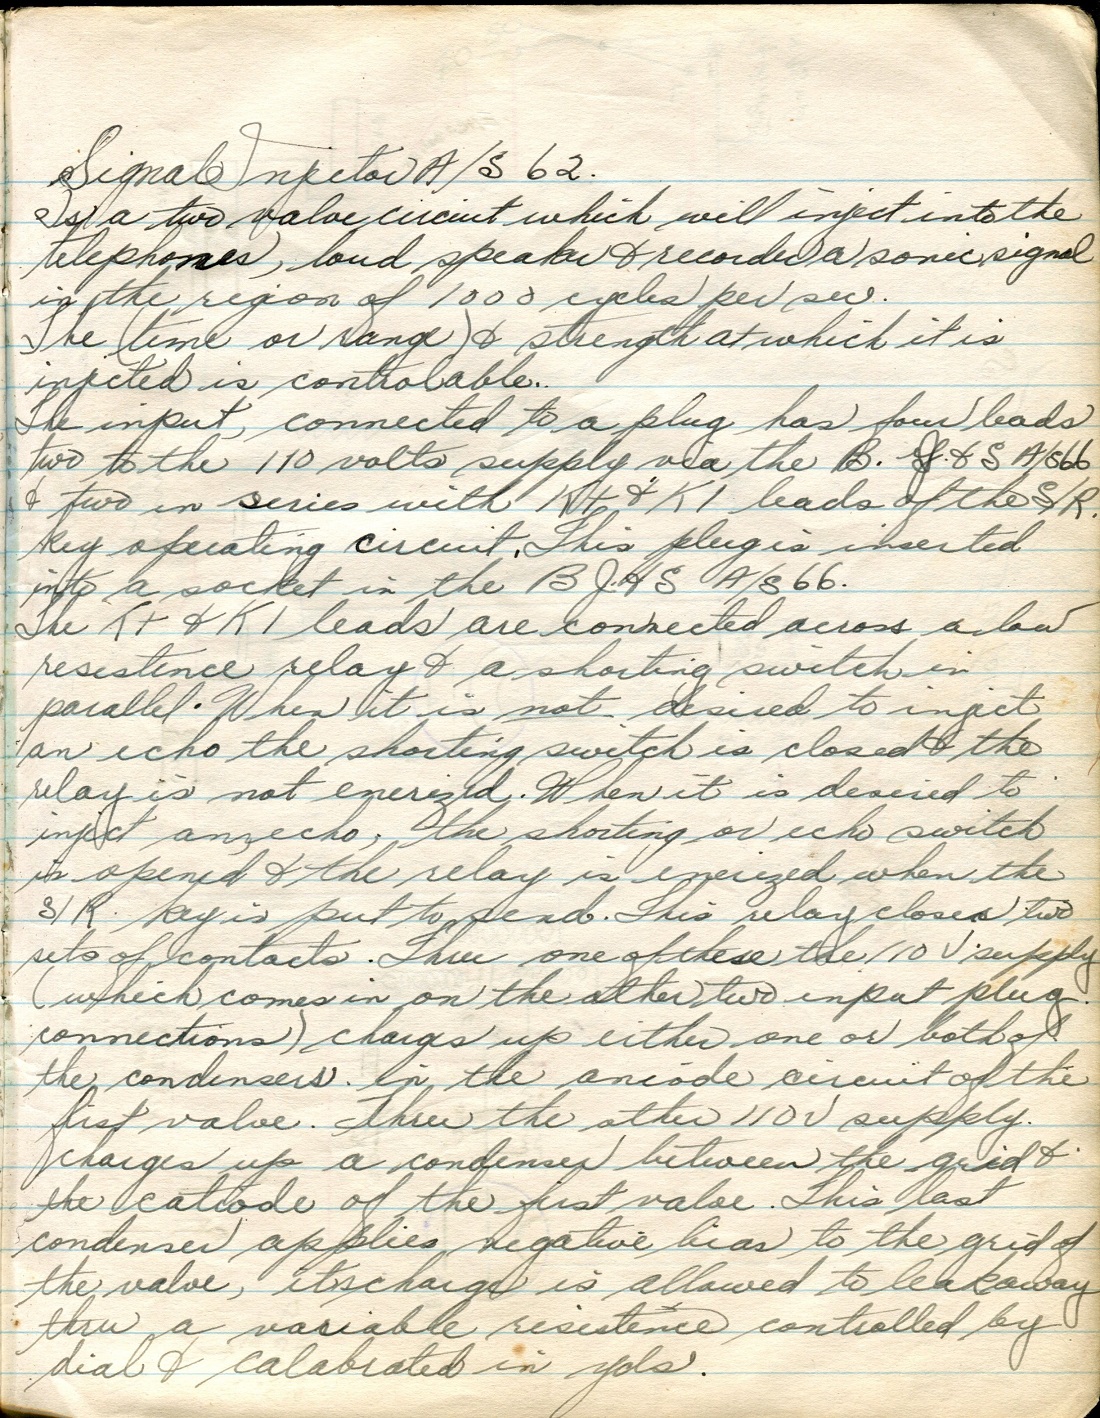 Signal Injector A/S 62.
Is a two valve circiut which will inject into the
telephones, loud speaker & recorder a sonic signal
in the region of 1000 cycles per sec.
The (time or range) & strength at which it is
injected is controlable..
The input, connected to a plug has four leads
two to the 110 volts supply via the B. J. & S A/S66
& two in series with K+ & K1 leads of the S/R.
key operating circuit. This plug is inserted
into a socket in the B J. & S A/S 66.
The K+ & K1 leads are connected across a low
resistence relay & a shorting switch in
parallel. When it is not desired to inject
an echo the shorting switch is closed & the
relay is not enerized. When it is desired to
inject an echo, the shorting or echo switch
is opened & the relay is enerized when the
S/R. key is put to send. This relay closes two
sets of contacts. Thru one of these the 110 V supply
(which comes in on the other two input plug
connections) charges up either one or both of
the condensers. in the anode circuit of the
first valve. Thru the other 110V supply.
charges up a condenser between the grid &
the catiode of the first valve. This last
condenser applies negative bias to the grid of
the valve, its charge is allowed to leak away
thru a variable resistence controlled by
dial & calabrated in yds.